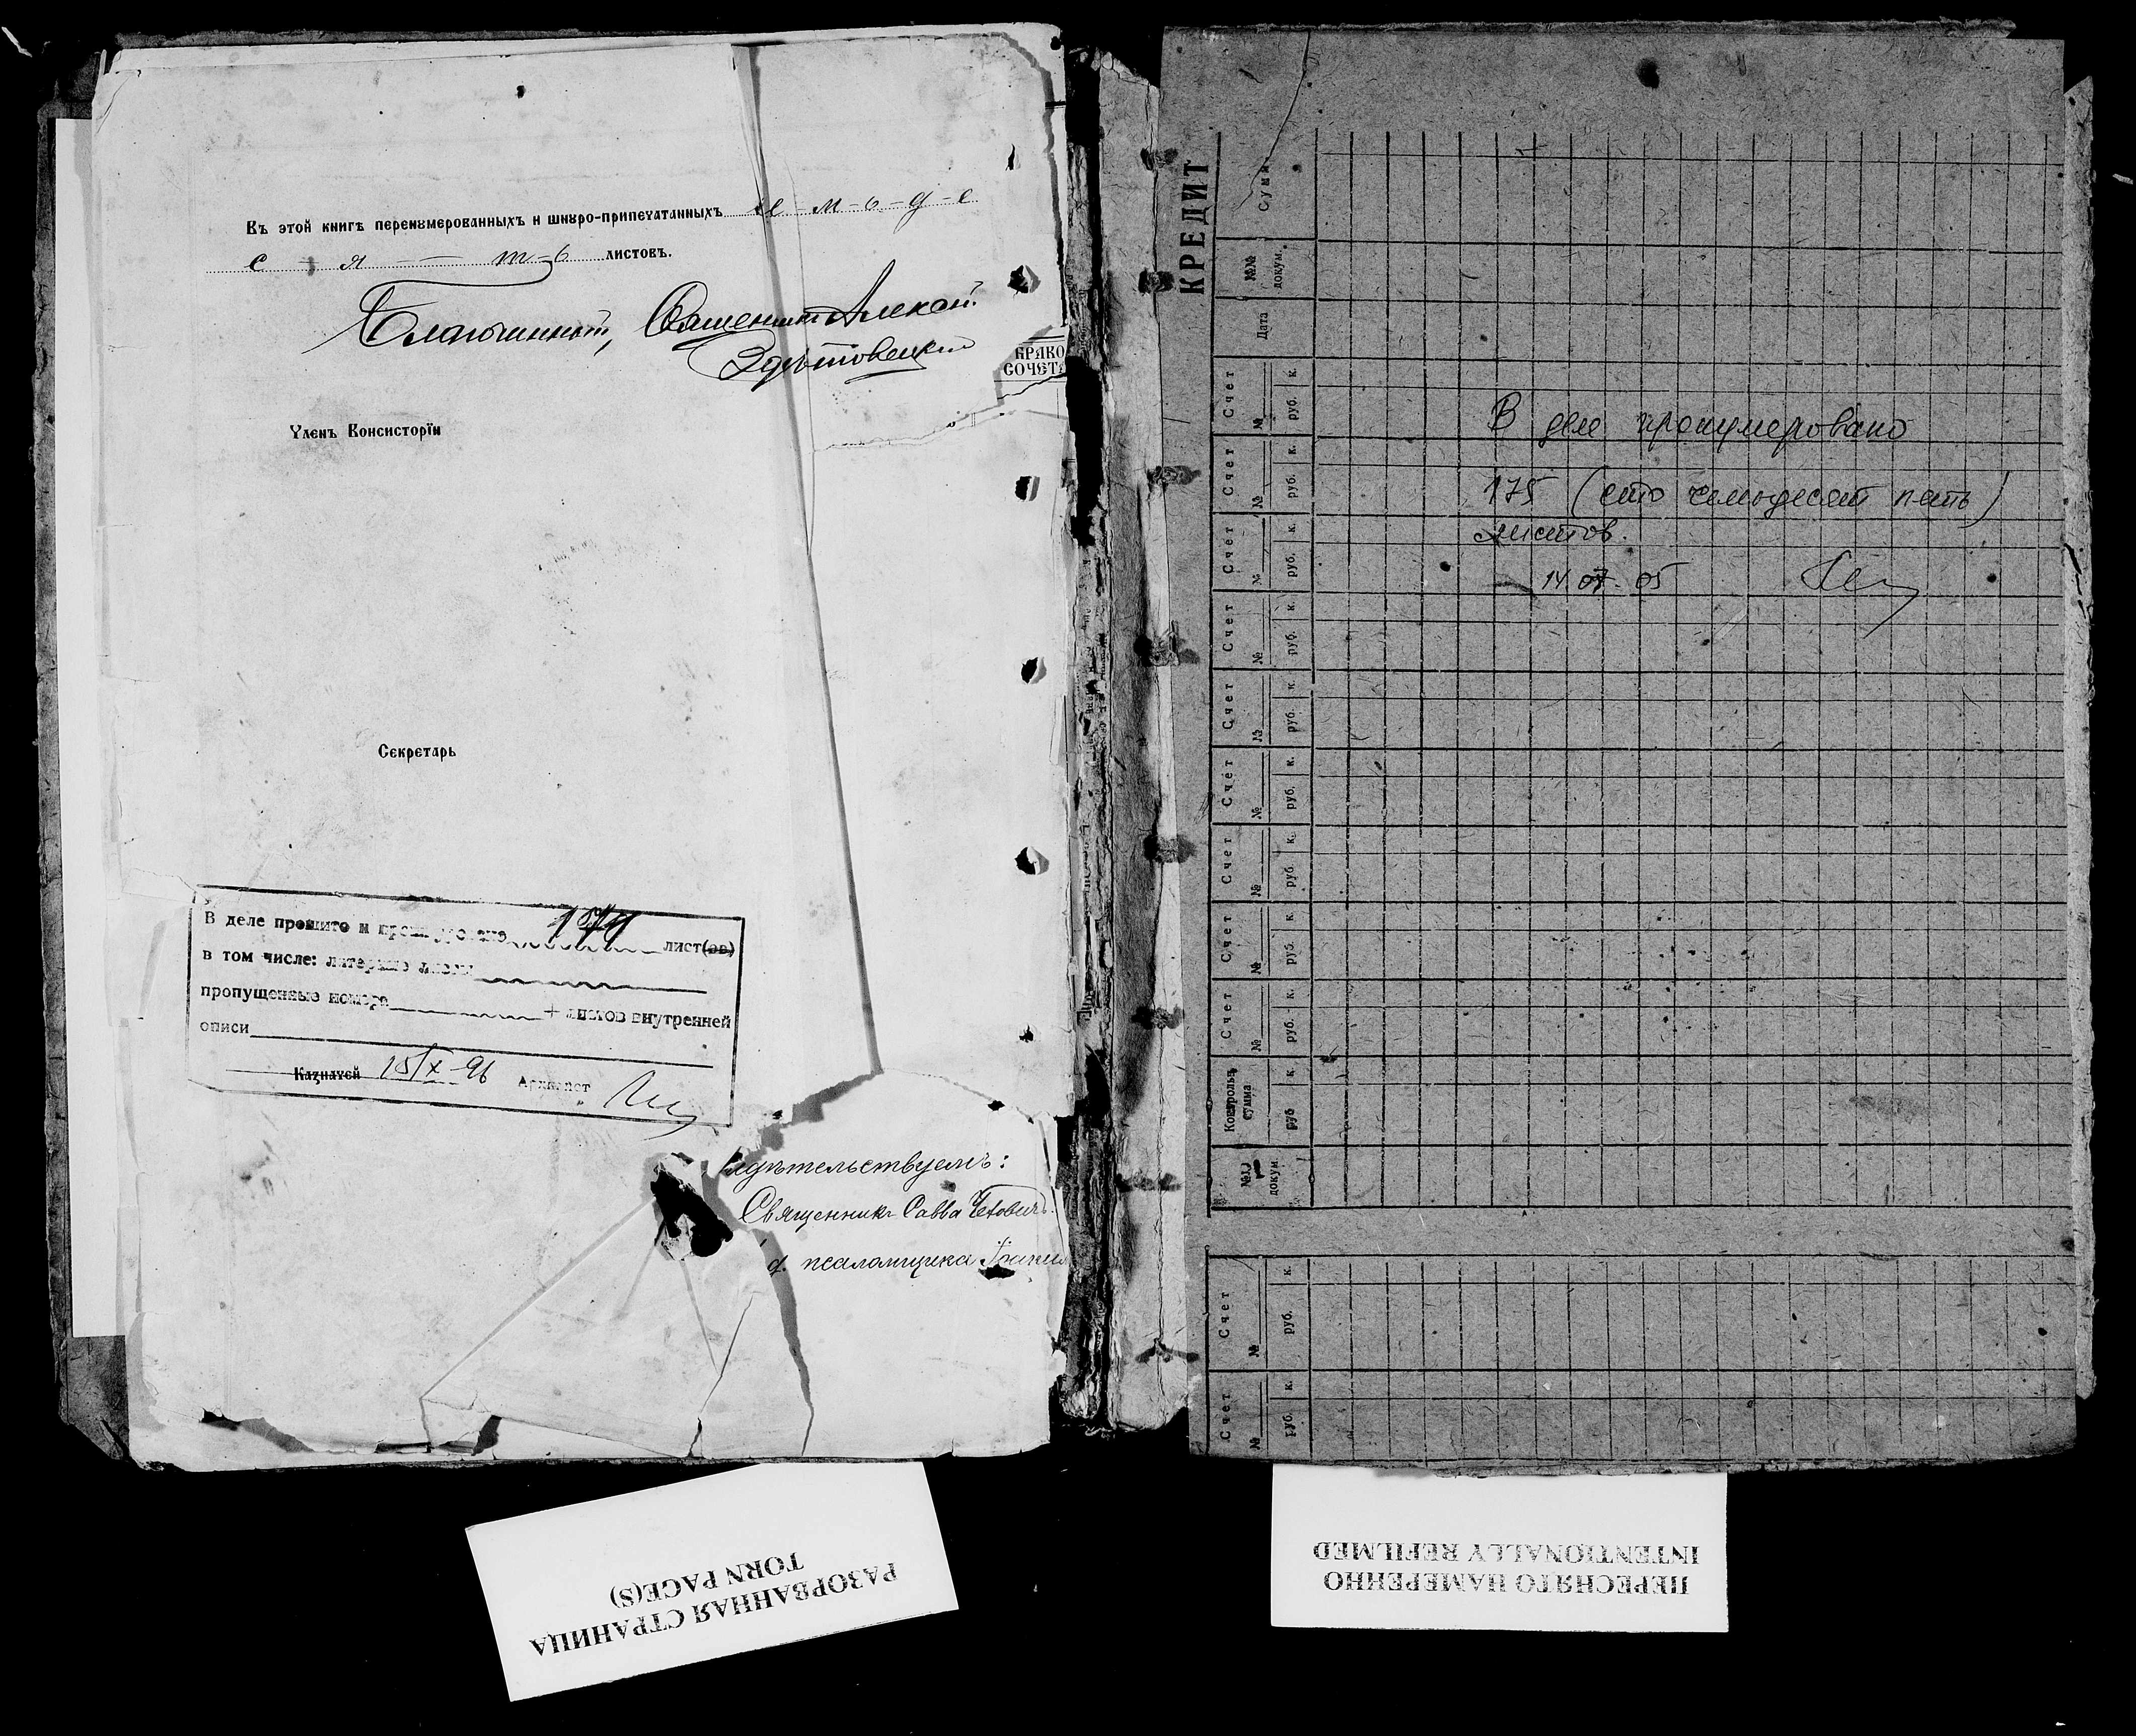 Въ этой книгѣ перенумерованныхъ и шнуро-припечатанныхъ с-е-м-ь-д-е
с-я-т-ь листовъ.
Благочинный, Священникъ Алексѣй
БРАКО
СОЧЕТА
Членъ Консисторіи
Секретарь
В деле прошито и пронумеровано лист(ов)
в том числе: литерные листы
пропущенные номера + листов внутренней
описи
Казначей 15/X-96 Архивист
дѣтельствуемъ:
Священникъ Савва
д. псаломщика
КРЕДИТ
Сумма
№№ докум.
Дата
Счет № руб. к.
Счет № руб. к.
Счет № руб. к.
Счет № руб. к.
Счет № руб. к.
Счет № руб. к.
Счет № руб. к.
Счет № руб. к.
Счет № руб. к.
Контрольн. сумма руб к.
№№ докум.
Счет № руб. к.
Счет № руб. к.
В деле пронумеровано
175 (сто семьдесят пять)
листов.
14.07.05
РАЗОРВАННАЯ СТРАНИЦА
TORN PAGE(S)
ПЕРЕСНЯТО НАМЕРЕННО
INTENTIONALLY REFILMED